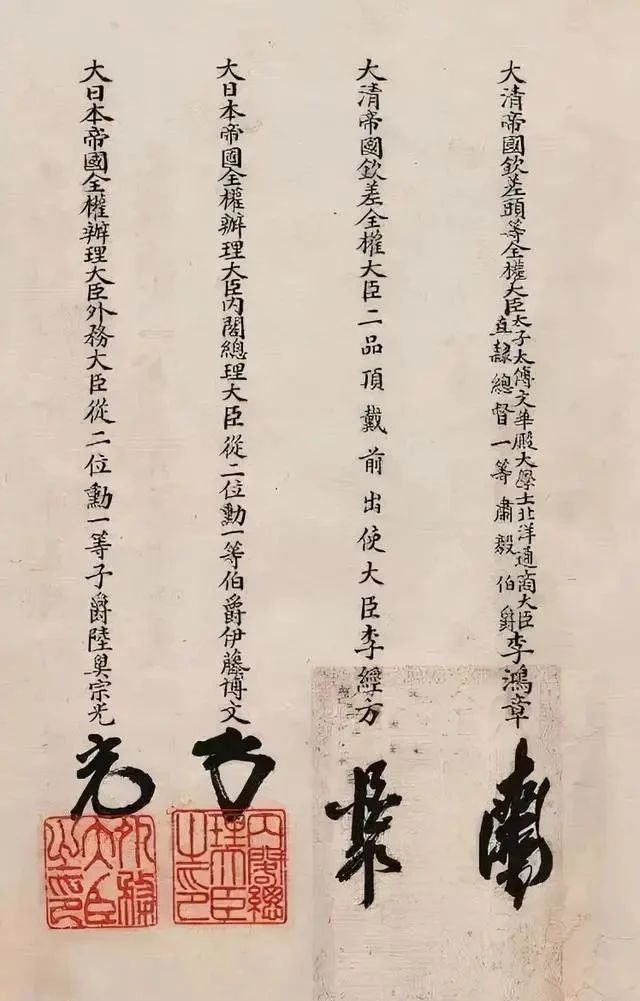 大清帝國欽差頭等全權大臣太子太傅文華殿大學士北洋通商大臣
直隸總督一等肅毅伯爵
李鴻章
大清帝國欽差全權大臣二品頂戴前出使大臣李經方
大日本帝國全權辦理大臣內閣總理大臣從二位勳一等伯爵伊藤博文
內閣總
理大臣
之印
大日本帝國全權辦理大臣外務大臣從二位勳一等子爵陸奥宗光
光
外務
大臣
之印